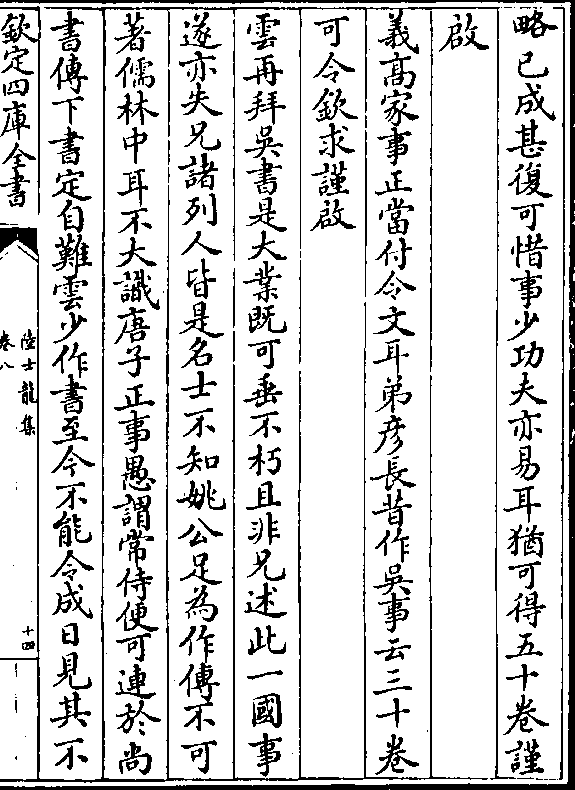 略已成甚復可惜事少功夫亦易耳猶可得五十卷謹
啟
義高家事正當付令文耳弟彥長昔作吳事云三十卷
可令欽求謹啟
雲再拜吳書是大業既可垂不朽且非兄述此一國事
遂亦失兄諸列人皆是名士不知姚公足為作傳不可
著儒林中耳不大識唐子正事愚謂常侍便可連於尚
書傳下書定自難雲少作書至今不能令成日見其不
欽定四庫全書
陸士龍集
卷八
十四